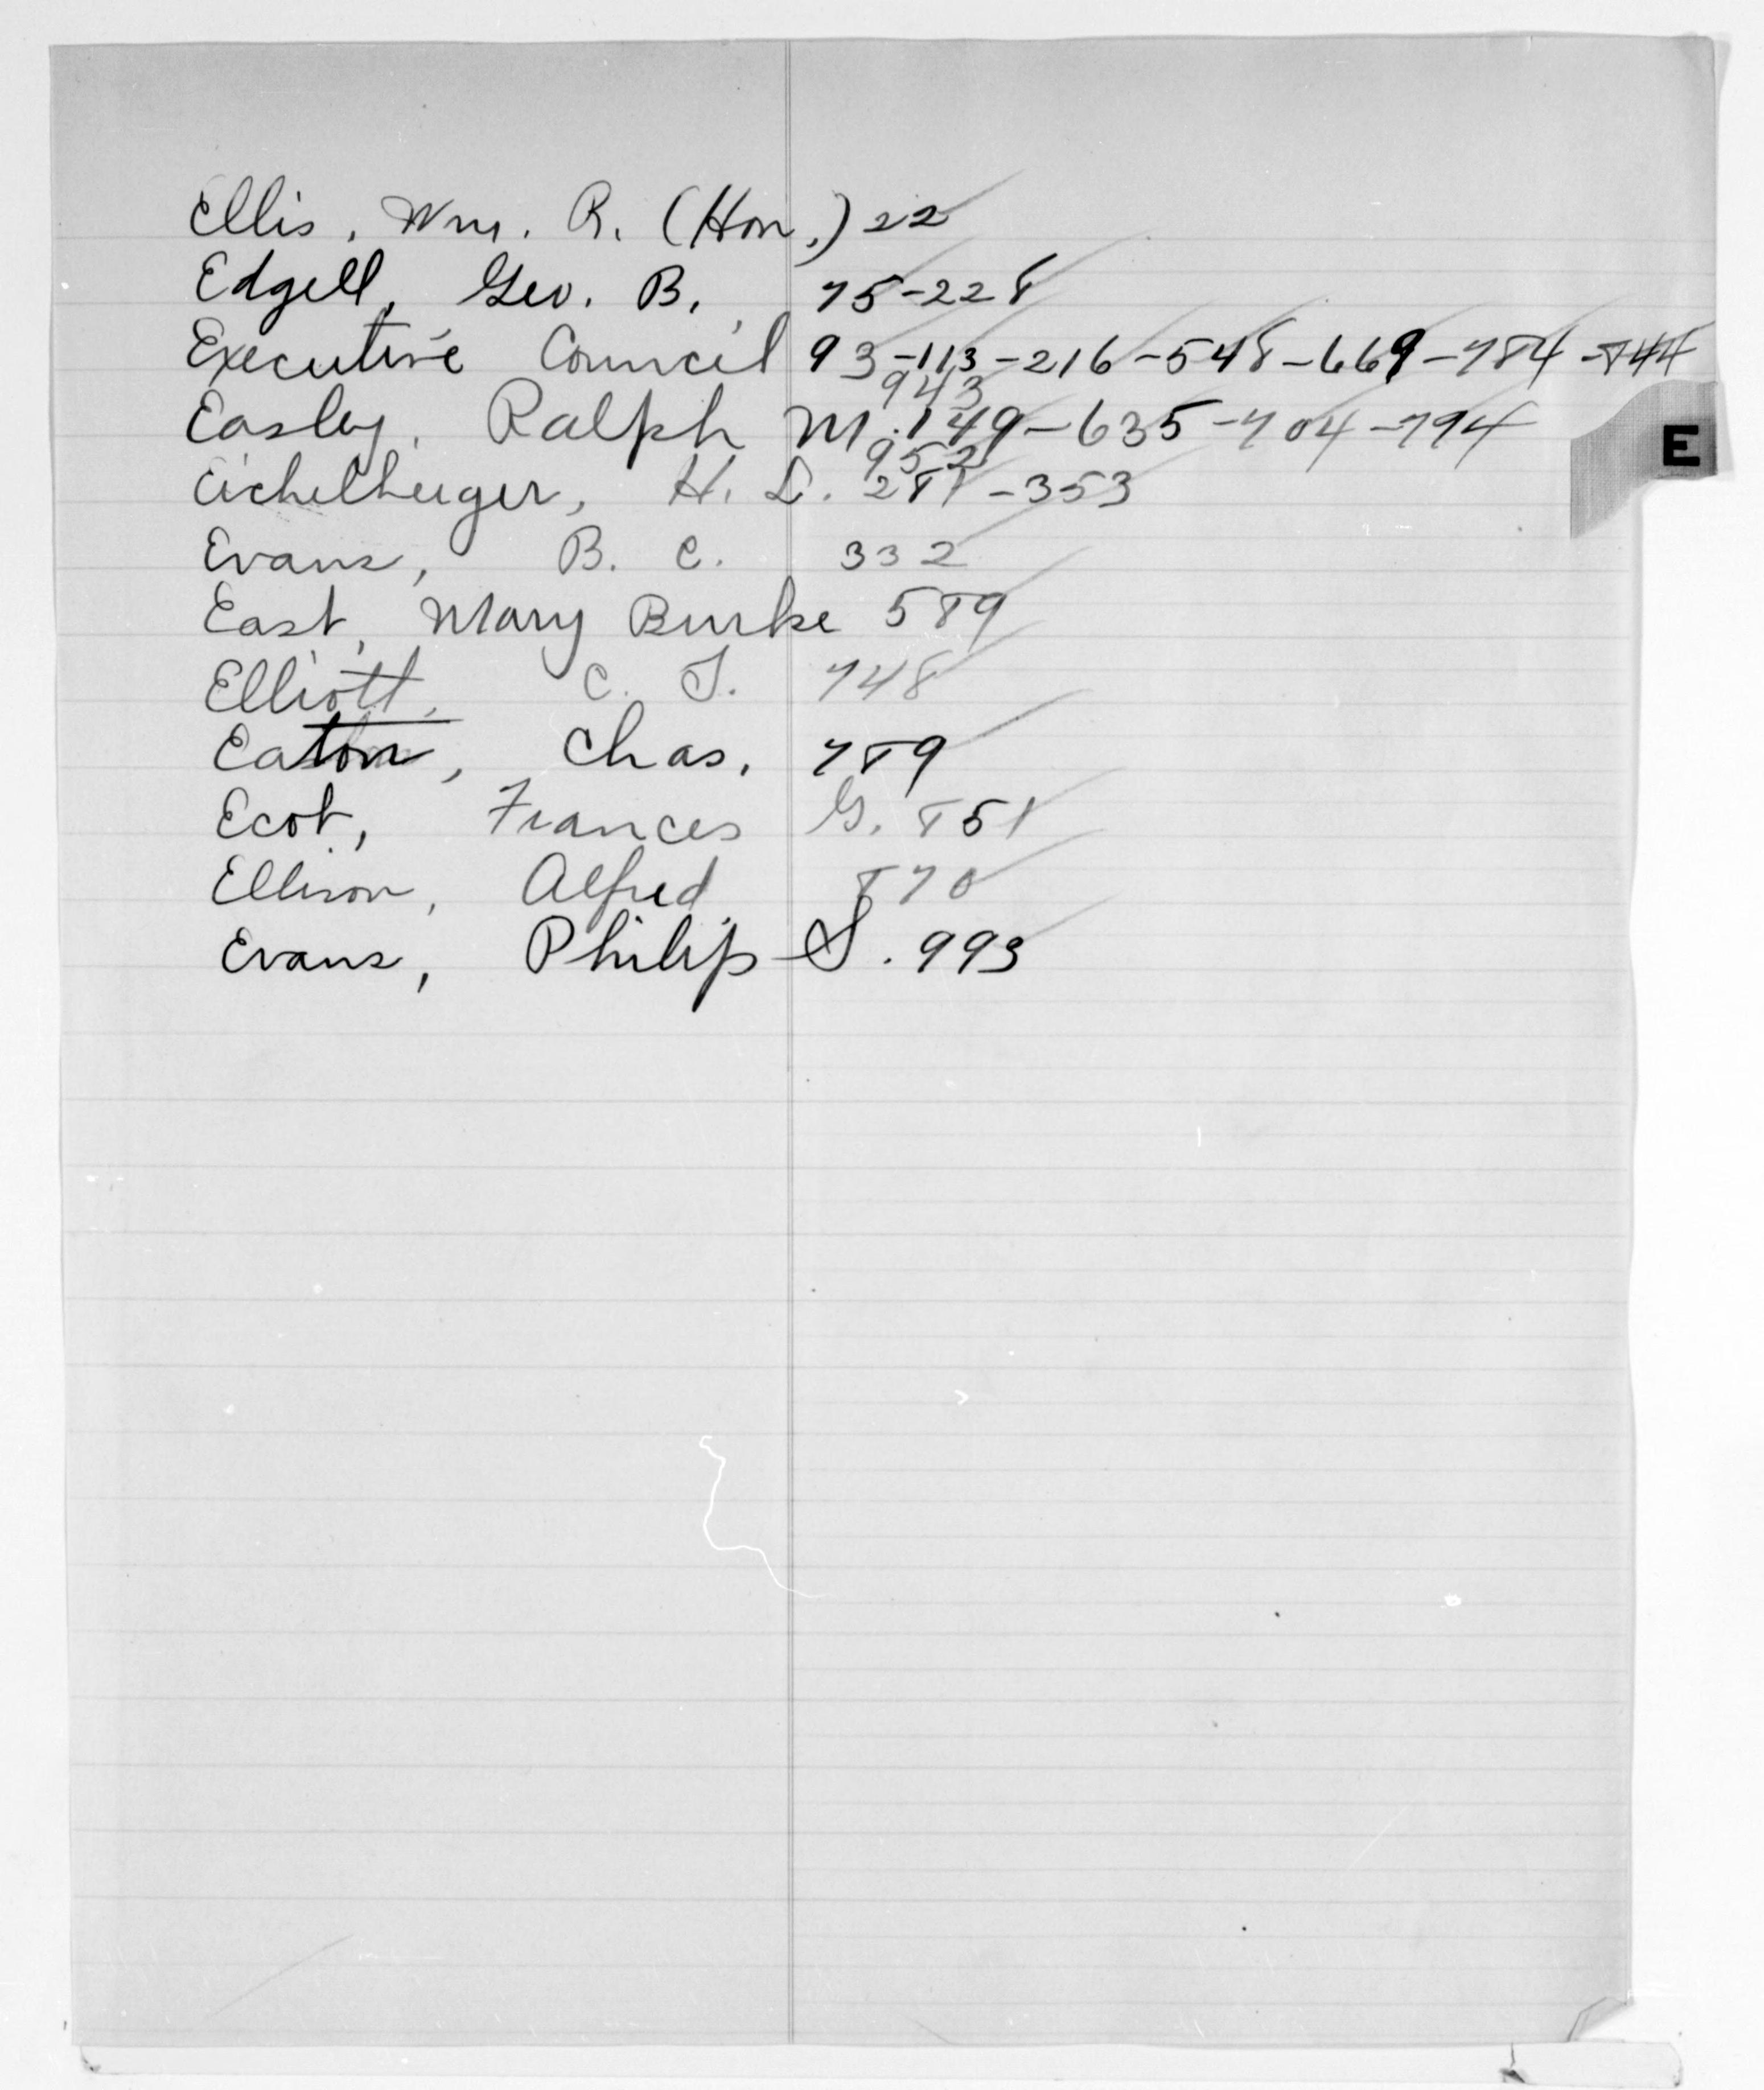 Ellis, Wm. R. (Hon.) 22
Edgell, Geo. B. 75-228
Executive Council 93-113-216-548-669-784-844
943
Easley, Ralph M. 149-635-704-794
952
Eichelberger, H. L. 281-353
Evans, B. C. 332
East, Mary Burke 589
Elliott, C. T. 748
Eaton, Chas. 789
Ecot, Frances G. 851
Ellison, Alfred 870
Evans, Philip S. 993
E